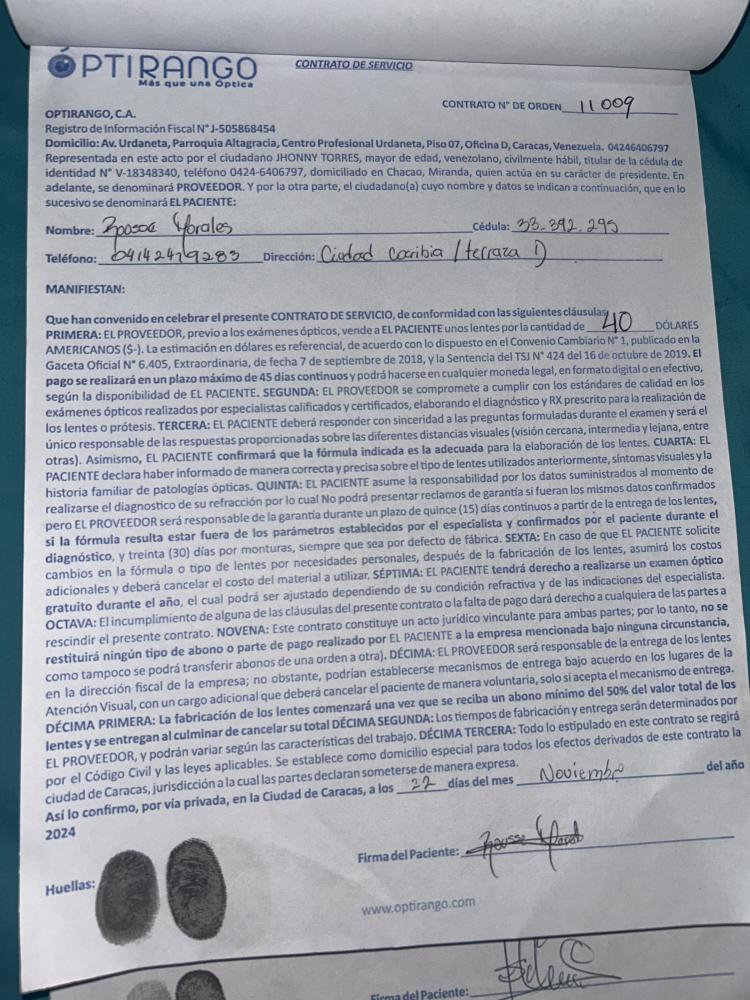 ÓPTIRANGO
Más que una Óptica
CONTRATO DE SERVICIO
CONTRATO N° DE ORDEN 11009
OPTIRANGO, C.A.
Registro de Información Fiscal N° J-505868454
Domicilio: Av. Urdaneta, Parroquia Altagracia, Centro Profesional Urdaneta, Piso 07, Oficina D, Caracas, Venezuela. 04246406797
Representada en este acto por el ciudadano JHONNY TORRES, mayor de edad, venezolano, civilmente hábil, titular de la cédula de
identidad N° V-18348340, teléfono 0424-6406797, domiciliado en Chacao, Miranda, quien actúa en su carácter de presidente. En
adelante, se denominará PROVEEDOR. Y por la otra parte, el ciudadano(a) cuyo nombre y datos se indican a continuación, que en lo
sucesivo se denominará EL PACIENTE:
Nombre: Morales Cédula: 33.392.295
Teléfono: 04142479283 Dirección: Ciudad caribia / terraza D
MANIFIESTAN:
Que han convenido en celebrar el presente CONTRATO DE SERVICIO, de conformidad con las siguientes cláusulas
PRIMERA: EL PROVEEDOR, previo a los exámenes ópticos, vende a EL PACIENTE unos lentes por la cantidad de 40 DÓLARES
AMERICANOS ($-). La estimación en dólares es referencial, de acuerdo con lo dispuesto en el Convenio Cambiario N° 1, publicado en la
Gaceta Oficial N° 6.405, Extraordinaria, de fecha 7 de septiembre de 2018, y la Sentencia del TSJ N° 424 del 16 de octubre de 2019. El
pago se realizará en un plazo máximo de 45 días continuos y podrá hacerse en cualquier moneda legal, en formato digital o en efectivo,
según la disponibilidad de EL PACIENTE. SEGUNDA: EL PROVEEDOR se compromete a cumplir con los estándares de calidad en los
exámenes ópticos realizados por especialistas calificados y certificados, elaborando el diagnóstico y RX prescrito para la realización de
los lentes o prótesis. TERCERA: EL PACIENTE deberá responder con sinceridad a las preguntas formuladas durante el examen y será el
único responsable de las respuestas proporcionadas sobre las diferentes distancias visuales (visión cercana, intermedia y lejana, entre
otras). Asimismo, EL PACIENTE confirmará que la fórmula indicada es la adecuada para la elaboración de los lentes. CUARTA: EL
PACIENTE declara haber informado de manera correcta y precisa sobre el tipo de lentes utilizados anteriormente, síntomas visuales y la
historia familiar de patologías ópticas. QUINTA: EL PACIENTE asume la responsabilidad por los datos suministrados al momento de
realizarse el diagnostico de su refracción por lo cual No podrá presentar reclamos de garantía si fueran los mismos datos confirmados
pero EL PROVEEDOR será responsable de la garantía durante un plazo de quince (15) días continuos a partir de la entrega de los lentes,
si la fórmula resulta estar fuera de los parámetros establecidos por el especialista y confirmados por el paciente durante el
diagnóstico, y treinta (30) días por monturas, siempre que sea por defecto de fábrica. SEXTA: En caso de que EL PACIENTE solicite
cambios en la fórmula o tipo de lentes por necesidades personales, después de la fabricación de los lentes, asumirá los costos
adicionales y deberá cancelar el costo del material a utilizar. SÉPTIMA: EL PACIENTE tendrá derecho a realizarse un examen óptico
gratuito durante el año, el cual podrá ser ajustado dependiendo de su condición refractiva y de las indicaciones del especialista.
OCTAVA: El incumplimiento de alguna de las cláusulas del presente contrato o la falta de pago dará derecho a cualquiera de las partes a
rescindir el presente contrato. NOVENA: Este contrato constituye un acto jurídico vinculante para ambas partes; por lo tanto, no se
restituirá ningún tipo de abono o parte de pago realizado por EL PACIENTE a la empresa mencionada bajo ninguna circunstancia,
como tampoco se podrá transferir abonos de una orden a otra). DÉCIMA: EL PROVEEDOR será responsable de la entrega de los lentes
en la dirección fiscal de la empresa; no obstante, podrían establecerse mecanismos de entrega bajo acuerdo en los lugares de la
Atención Visual, con un cargo adicional que deberá cancelar el paciente de manera voluntaria, solo si acepta el mecanismo de entrega.
DÉCIMA PRIMERA: La fabricación de los lentes comenzará una vez que se reciba un abono mínimo del 50% del valor total de los
lentes y se entregan al culminar de cancelar su total DÉCIMA SEGUNDA: Los tiempos de fabricación y entrega serán determinados por
EL PROVEEDOR, y podrán variar según las características del trabajo. DÉCIMA TERCERA: Todo lo estipulado en este contrato se regirá
por el Código Civil y las leyes aplicables. Se establece como domicilio especial para todos los efectos derivados de este contrato la
ciudad de Caracas, jurisdicción a la cual las partes declaran someterse de manera expresa.
Así lo confirmo, por vía privada, en la Ciudad de Caracas, a los 22 días del mes Noviembre del año
2024
Firma del Paciente:
Huellas:
www.optirango.com
Firma del Paciente: